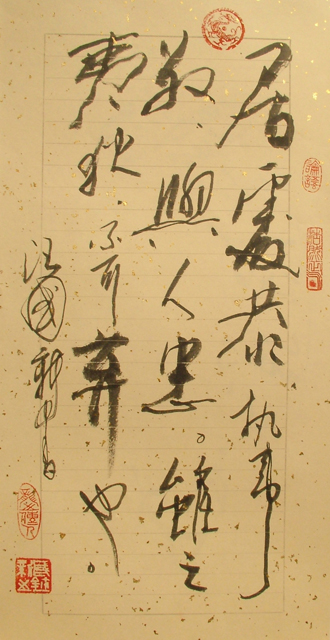 居處恭執事
敬、與人忠。雖之
夷狄、不可棄也。
汪國新
論語